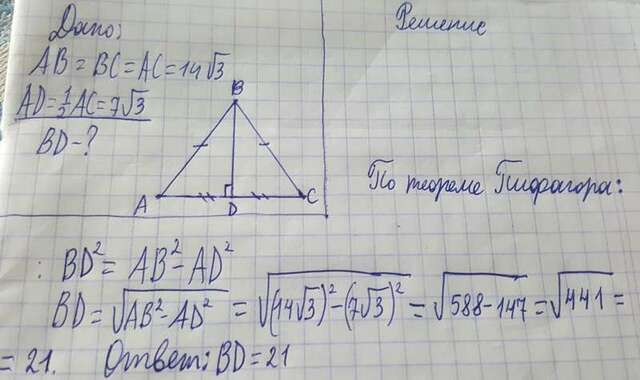 Дано:
AB = BC = AC = 14√3
AD = 1/2 AC = 7√3
BD - ?
B
A
D
C
Решение
По теореме Пифагора:
: BD² = AB² - AD²
BD = √(AB² - AD²) = √((14√3)² - (7√3)²) = √(588 - 147) = √441 =
= 21. Ответ: BD = 21